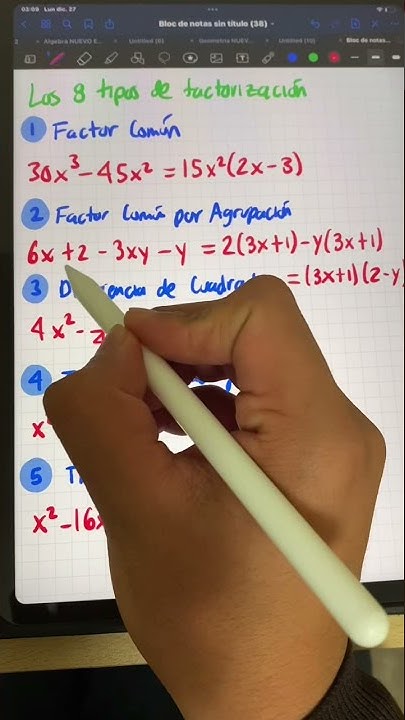 03:09 Lun dic. 27
Bloc de notas sin título (38)
Algebra NUEVO E... Untitled (6) Geometria NUEV... Untitled (10) Bloc de notas...
Los 8 tipos de factorización
1 Factor Común
30x³ - 45x² = 15x²(2x - 3)
2 Factor Común por Agrupación
6x + 2 - 3xy - y = 2(3x+1) - y(3x+1)
= (3x+1)(2-y
3 de Cuadrad
4x² -
4
x
5
x² - 16x